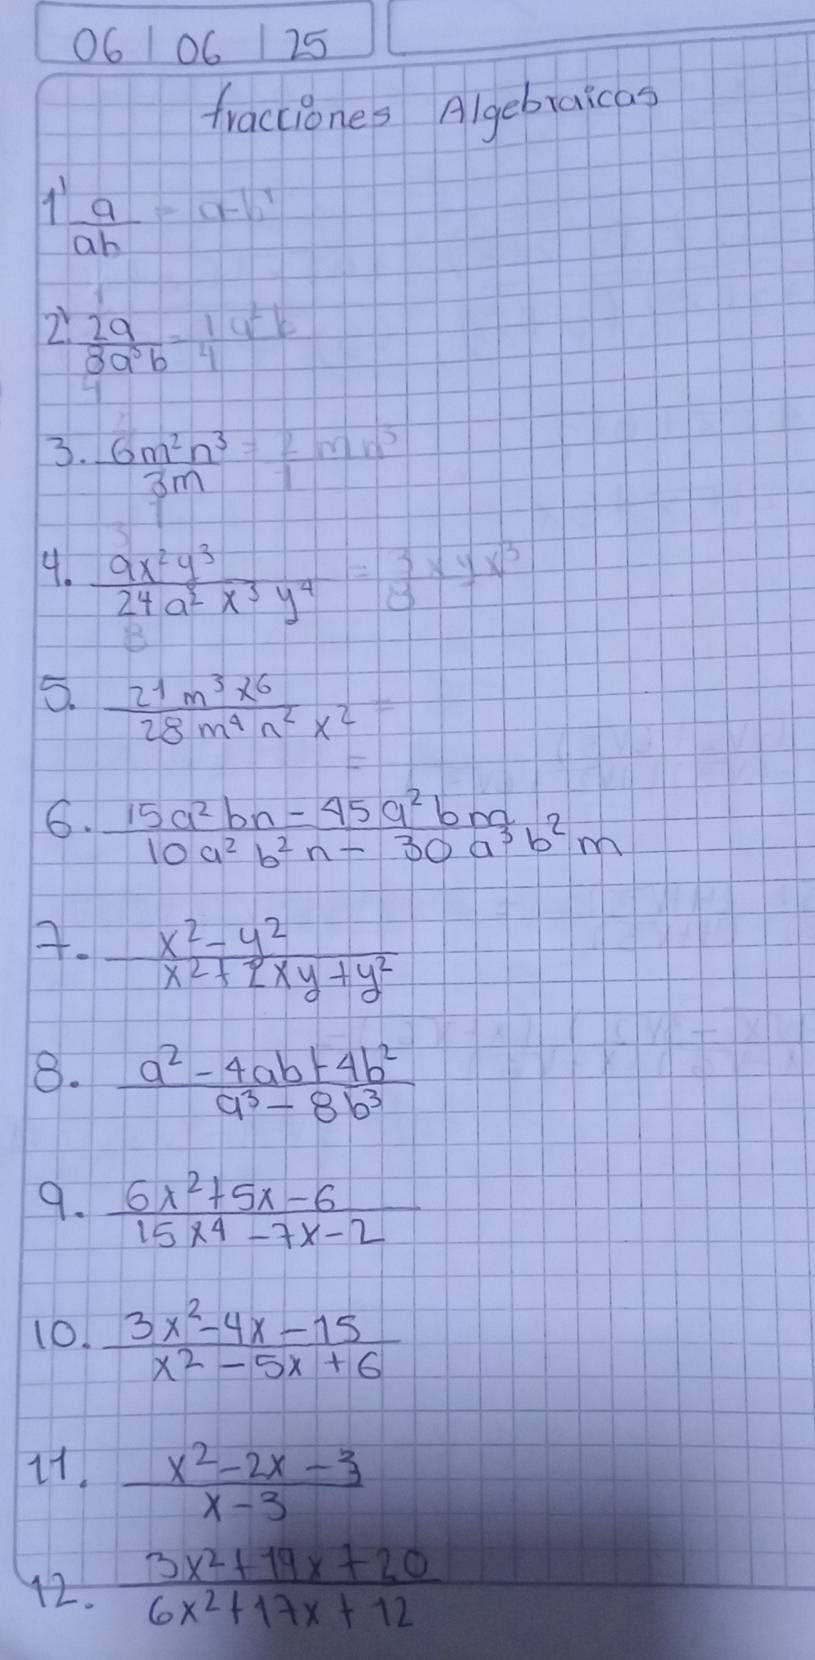 06 | 06 | 25
fracciones Algebraicas
1' a/ab = a-b¹
2' 2a/8a³b = 1/4 a²b
3. 6m²n³/3m = 2/1 mn³
4. 9x²y³/24a²x³y⁴ = 3/8 x y x³
5. 21m³x6/28m⁴n²x² =
=
6. 15a²bn-45a²bm/10a²b²n-30a³b²m
7. x²-y²/x²+2xy+y²
8. a²-4ab+4b²/a³-8b³
9. 6x²+5x-6/15x4-7x-2
10. 3x²-4x-15/x²-5x+6
11. x²-2x-3/x-3
12. 3x²+19x+20/6x²+17x+12